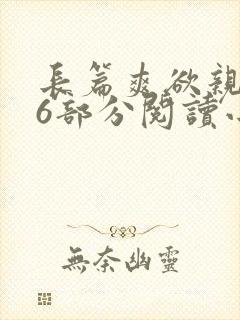 長篇爽欲親
6部分閱讀
無奈幽靈